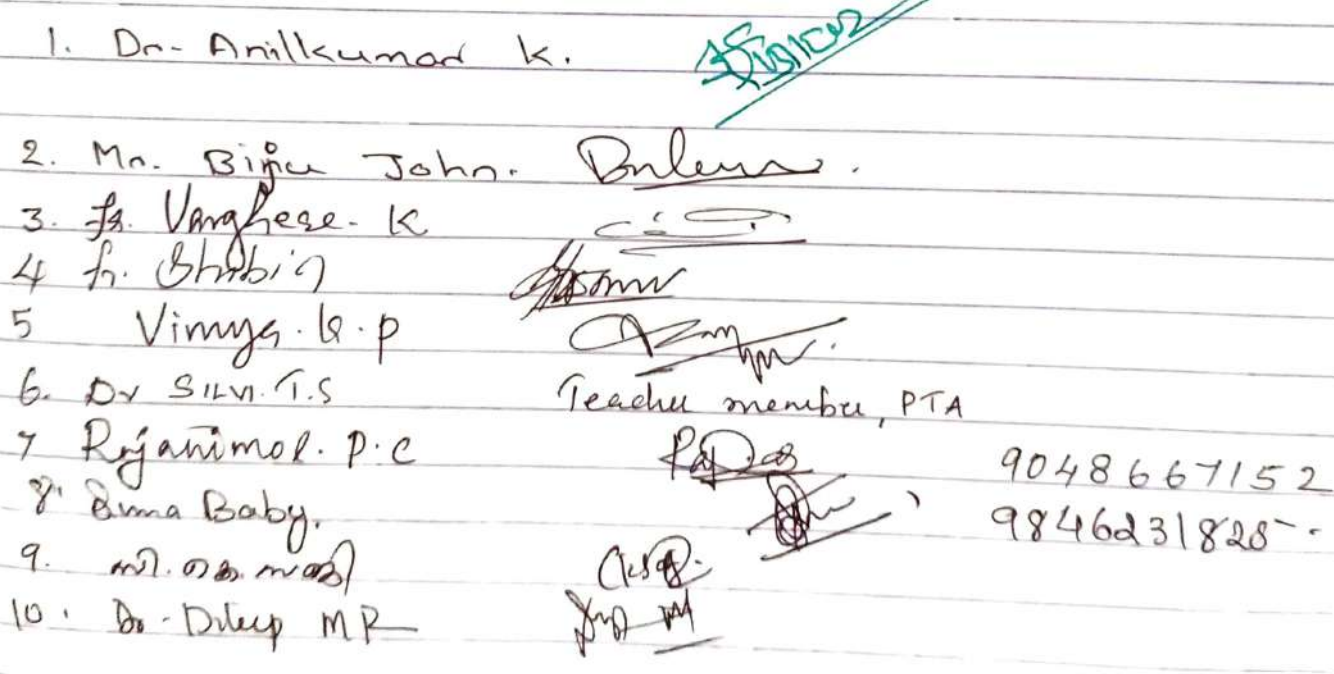 1. Dr. Anilkumar K.
2. Mr. Biju John.
3. Fr. Varghese. K
4 Fr. Shibin
5 Vimya. K. P
6. Dr SILVI. T.S Teacher member, PTA
7 Rajanimol. P.C 9048667152
8. Baby. 9846231825
9. സി. കെ.
10. Dr. Dileep MR